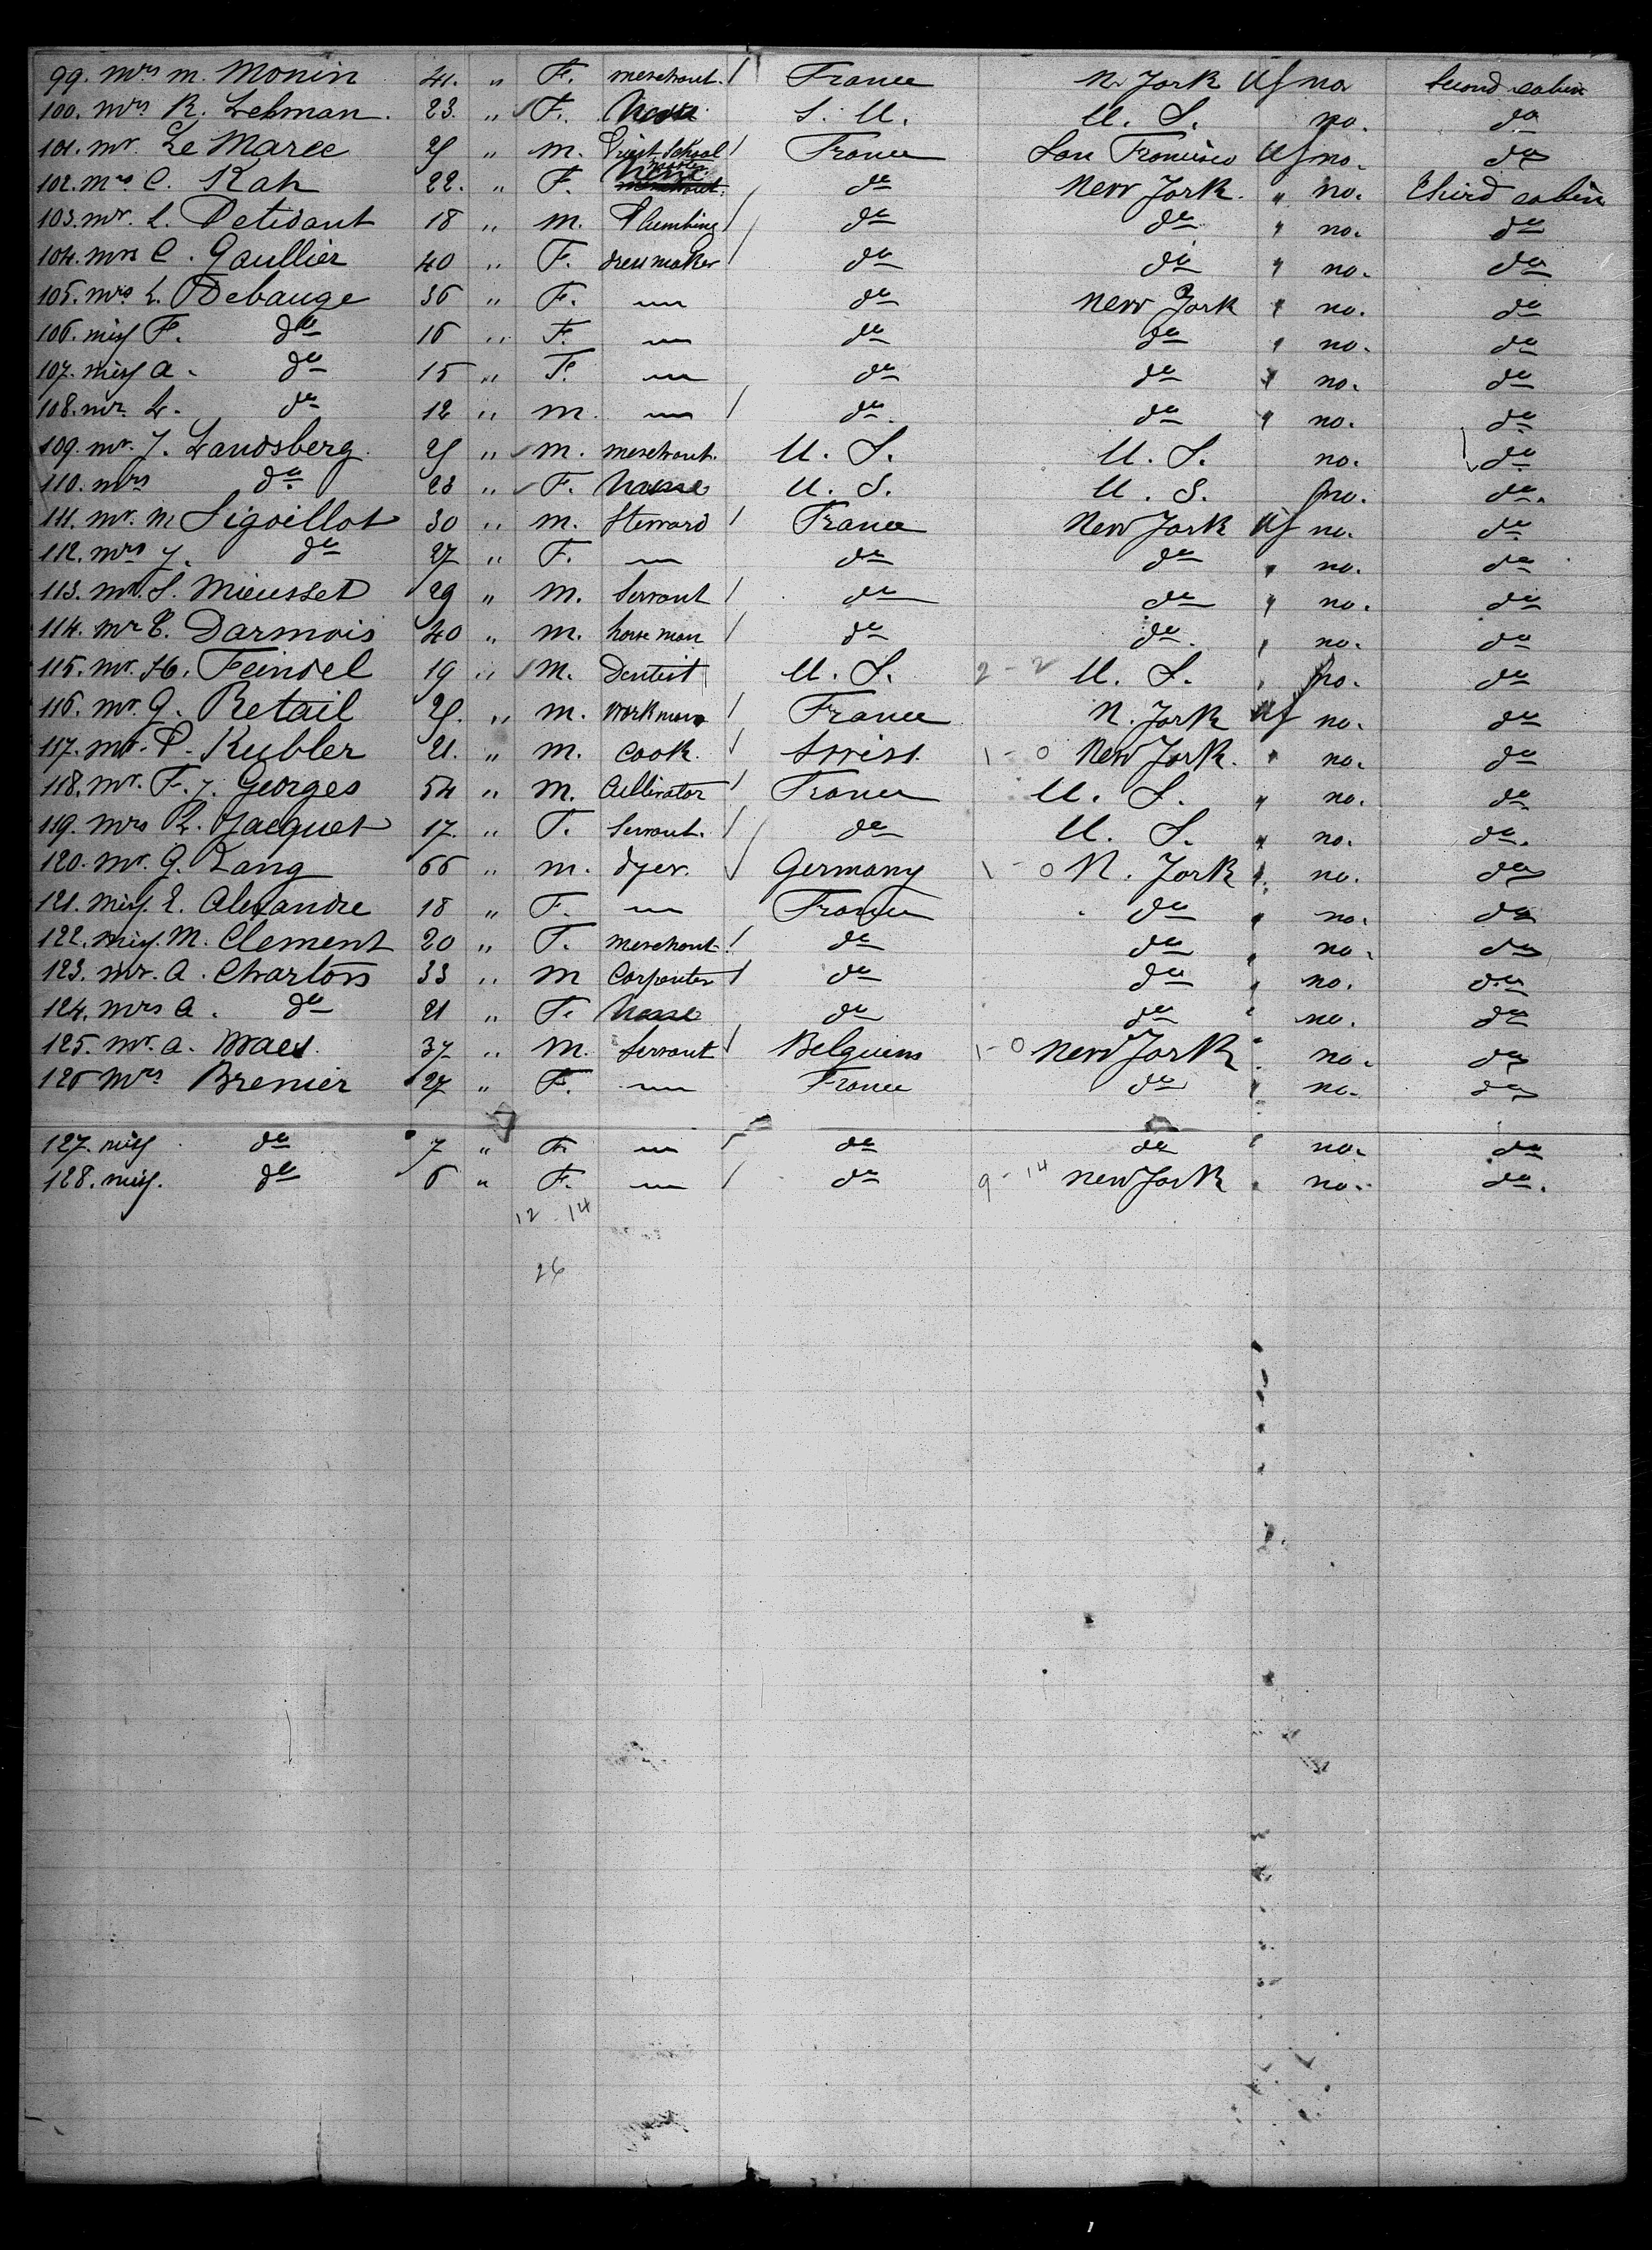 99. Mrs M. Monin 41. " F. merchant. / France N. York US no Second cabin
100. Mrs R. Lehman. 23. " F. None S. U. U. S. no. do
101. Mr. Le Marec 25 " M. Priest School master / France San Francisco US no. do
102. Mrs C. Kah 22. " F. None do New York. " no. Third cabin
103. Mr. L. Petidant 18 " M. Plumbing / do do " no. do
104. Mrs C. Gaullier 40 " F. dressmaker / do do " no. do
105. Mrs L. Debauge 36 " F. — do New York " no. do
106. Miss F. do 16 " F. — do do " no. do
107. Miss A. do 15 " F. — do do " no. do
108. Mr. L. do 12 " M. — / do do " no. do
109. Mr. J. Landsberg. 25 " M. merchant. U. S. U. S. no. do
110. Mrs do 23 " F. None U. S. U. S. no. do.
111. Mr. M Sigoillot 30 " M. Steward / France New York US no. do
112. Mrs J. do 27 " F. — do do " no. do
113. Mr. S. Mieusset 29 " M. Servant / do do " no. do
114. Mr E. Darmois 40 " M. horse man / do do. " no. do
115. Mr. H. Feindel 19 " M. Dentist U. S. 2 - 2 U. S. " no. do
116. Mr. G. Retail 25. " M. Workman / France N. York US no. do
117. Mr. P. Kubler 21. " M. Cook. / Swiss. 1 - 0 New York. " no. do
118. Mr. F. J. Georges 54 " M. Cultivator / France U. S. " no. do
119. Mrs L. Jacquet 17. " F. Servant. / do U. S. " no. do.
120. Mr. G. Lang 66 " M. dyer. / Germany 1 - 0 N. York " no. do
121. Miss. E. Alexandre 18 " F. — France do " no. do
122. Miss. M. Clement 20 " F. Merchant / do do " no. do
123. Mr. A. Charlois 33 " M Carpenter / do do " no. do
124. Mrs A. do 21 " F. None do do " no. do
125. Mr. A. Maes 37 " M. Servant / Belguim 1 - 0 New York " no. do
126 Mrs Brenier 27 " F. — France do " no. do
127. Miss do 7 " F. — / do do " no. do
128. Miss. do 6 " F. — / do 9 - 14 New York " no. do.
12 - 14
26